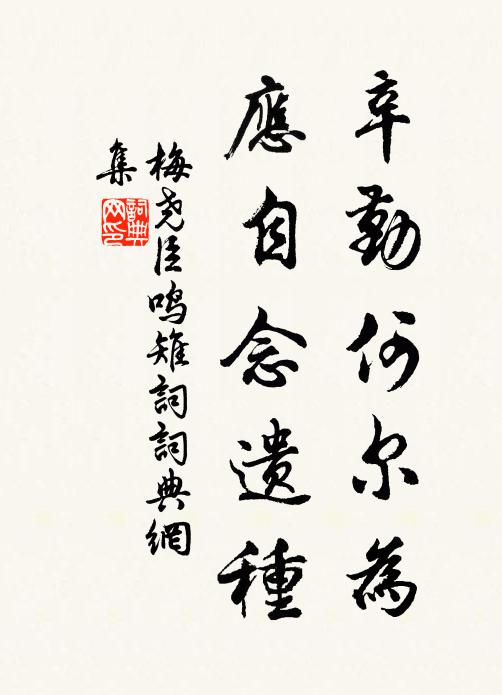 辛勤何尔為
應自念遗種
梅尧臣鸣雉詞詞典網
集
詞典网印